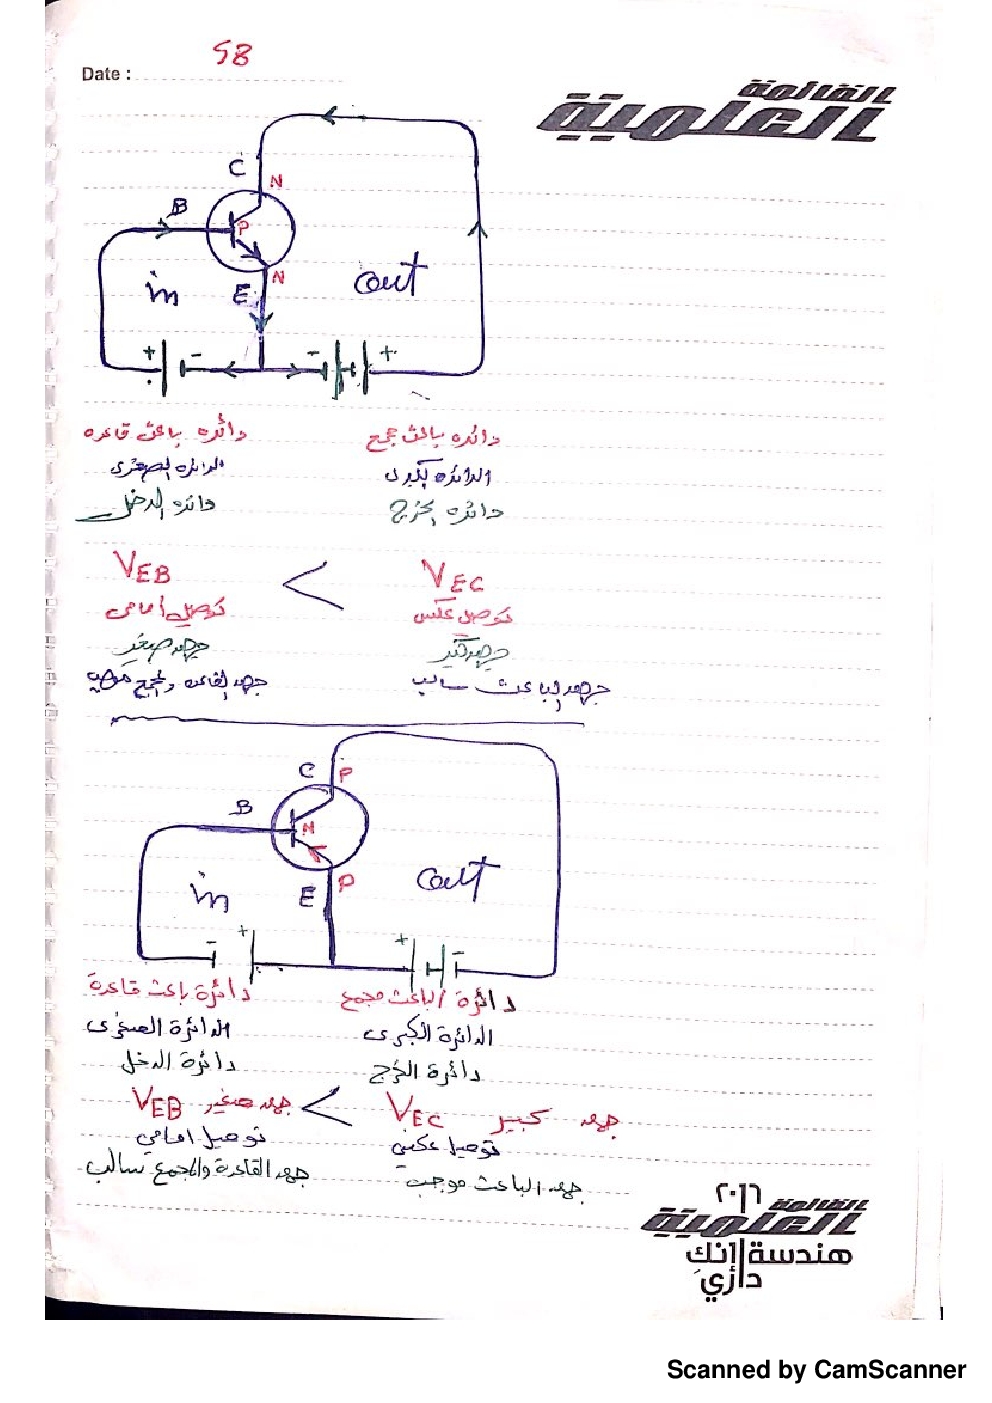 58
Date :
القائمة
العلمية
C
N
B
P
N
in
E
out
+ - - +
دائره باعث قاعده
دائره باعث مجمع
الدائره الصغرى
الدائره الكبرى
دائره الدخل
دائره الخرج
VEB < VEC
توصيل أمامى
توصيل عكس
جهد صغير
جهد كبير
جهد القاعده والمجمع موجب
جهد الباعث سالب
C
P
B
N
in
E
P
out
- + + -
دائرة باعث قاعدة
دائرة الباعث مجمع
الدائرة الصغرى
الدائرة الكبرى
دائرة الدخل
دائرة الخرج
VEB جهد صغير < VEC جهد كبير
توصيل امامي
توصيل عكسي
جهد القاعدة والمجمع سالب
جهد الباعث موجب
٢٠١٦
القائمة
العلمية
هندسة إنك
دأري
Scanned by CamScanner